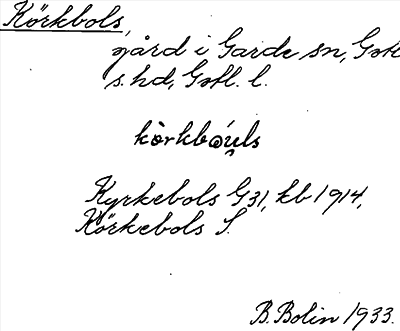 Körkbols,
gård i Garde sn, Gotl
s. hd, Gotl. l.
kòrkbo̯u̯ls
Kyrkebols G31, kb 1914,
Körkebols S.
B. Bolin 1933.